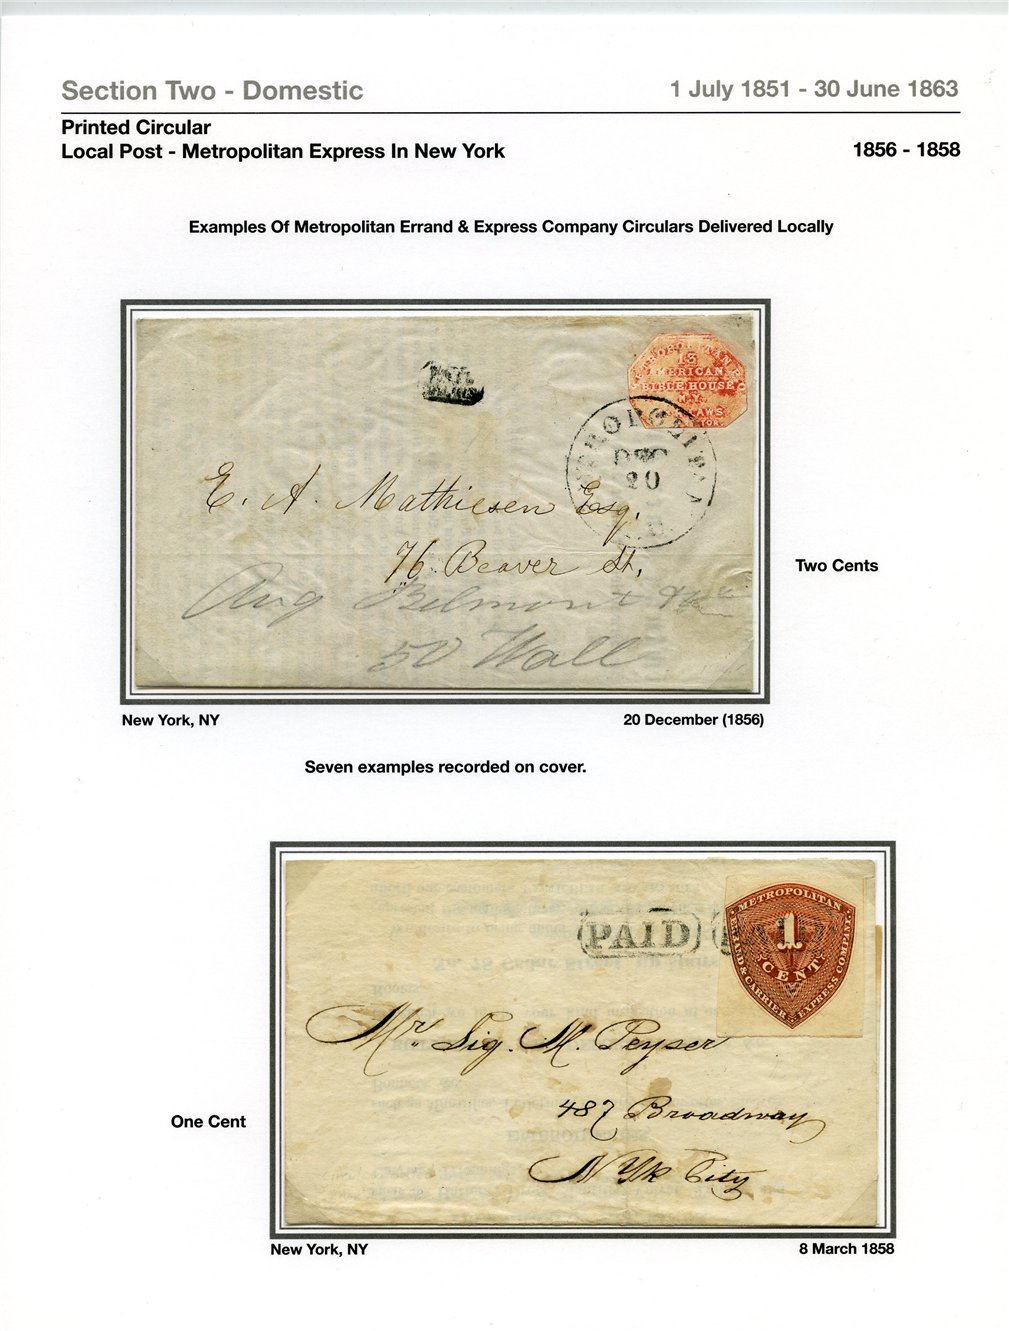 Section Two - Domestic
1 July 1851 - 30 June 1863
Printed Circular
Local Post - Metropolitan Express In New York
1856 - 1858
Examples Of Metropolitan Errand & Express Company Circulars Delivered Locally
13
AMERICAN
BIBLE HOUSE
N.Y.
DEC
20
E. A. Mathiesen Esq.
76 Beaver St,
Aug Belmont
50 Wall
Two Cents
New York, NY
20 December (1856)
Seven examples recorded on cover.
PAID
METROPOLITAN
1
CENT
ERRAND & CARRIER EXPRESS COMPANY
Mr. Sig. M. Peyser
487 Broadway
N Yk City
One Cent
New York, NY
8 March 1858